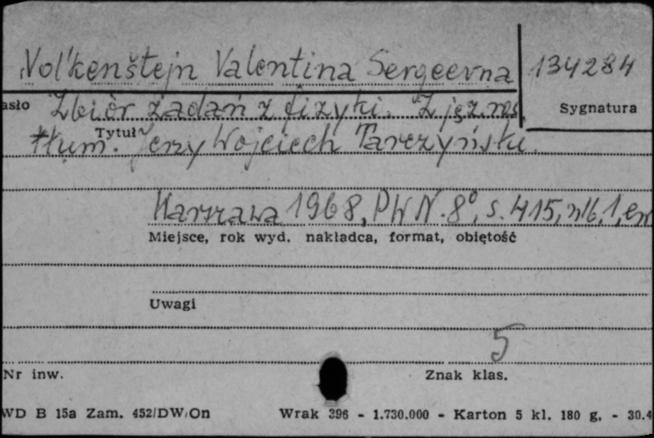 Vol'kenštejn Valentina Sergeevna 134284
asło Zbiór zadań z fizyki. Z jęz. ros. Sygnatura
Tytuł tłum. Jerzy Wojciech Tarczyński.
Warszawa 1968, PWN. 8°, s. 415, nlb, 1, err
Miejsce, rok wyd. nakładca, format, objętość
Uwagi
5
Nr inw. Znak klas.
WD B 15a Zam. 452/DW/On Wrak 396 - 1.730.000 - Karton 5 kl. 180 g. - 30.4